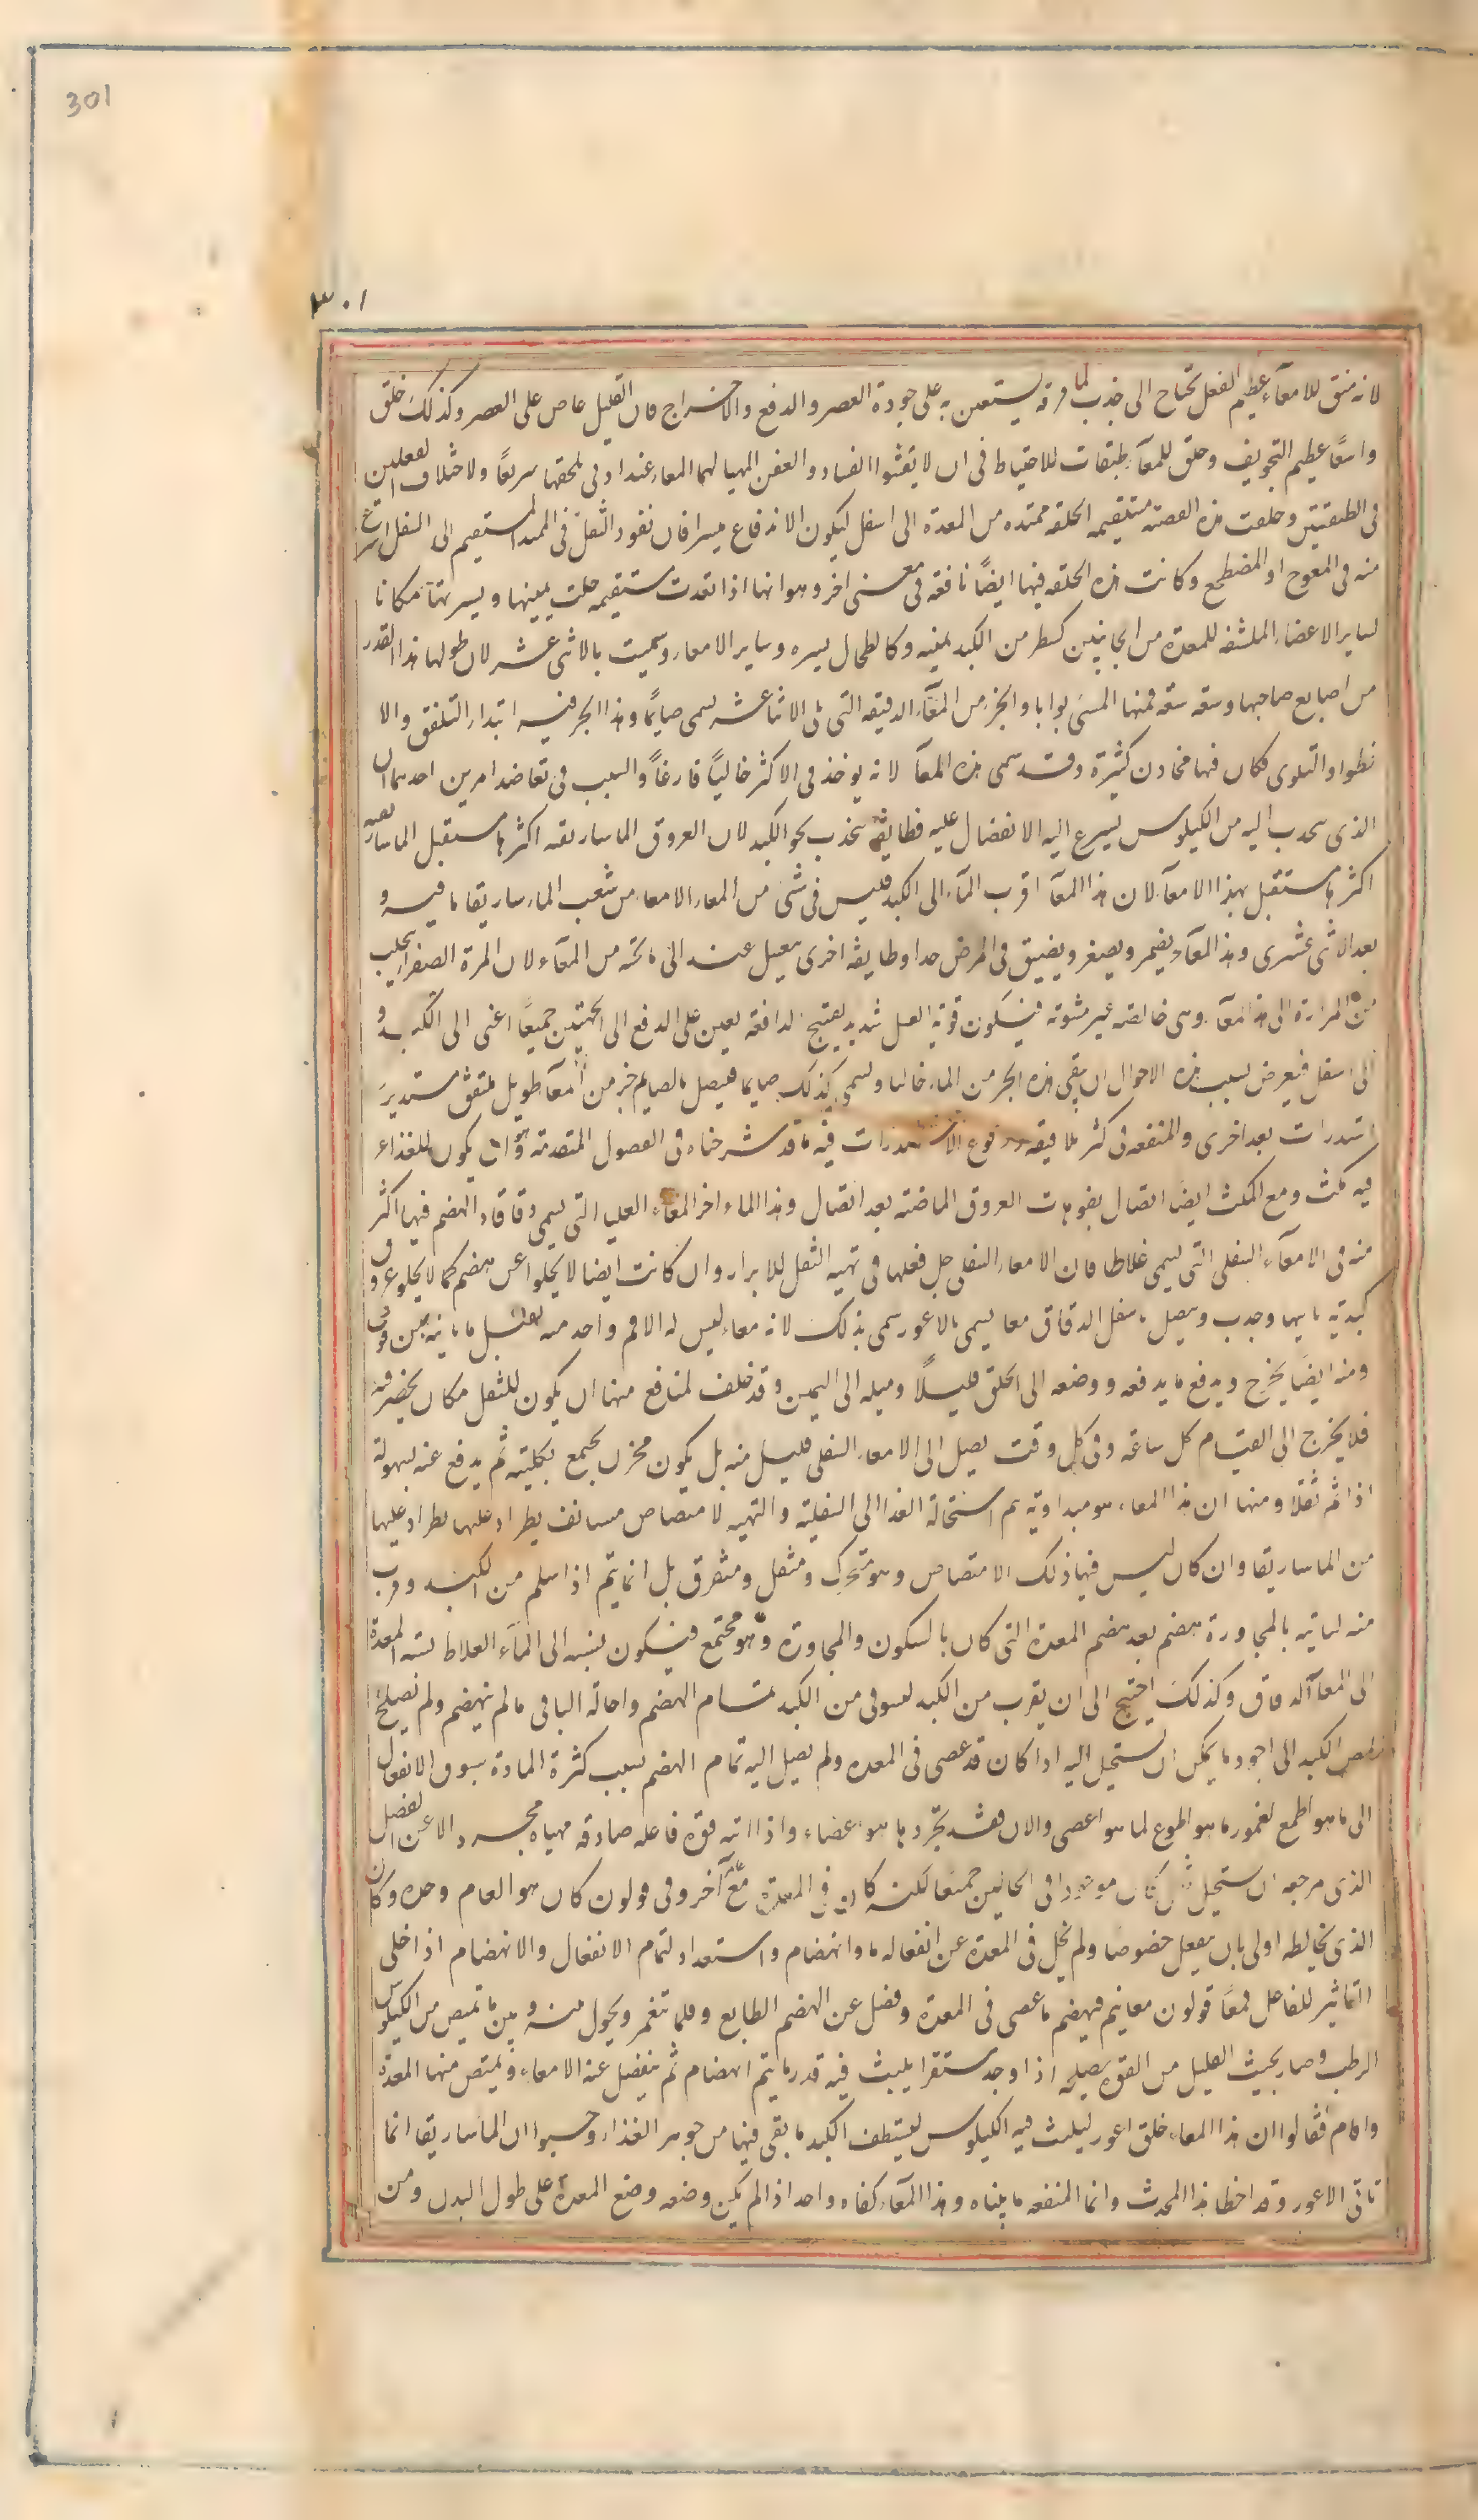 301
٣٠١
لانه منق للامعآء عظيم الفعل تحتاج الى جذب لما فرقه يستعين به على جودة العصر والدفع والاخراج فان القليل عاص على العصر وكذلك خلق
واسعًا عظيم التجويف وخلق للمعآء طبقات للاحتياط فى ان لا يفشوا الفساد والعفن المهيا لهما المعاء عند ادنى يلحقها سريعًا ولاختلاف الفعلين
فى الطبقتين وخلقت هذه القصبة مستقيمه الخلقه ممتده من المعدة الى اسفل ليكون الاندفاع ميسرا فان نفوذ الثقل فى الممتد المستقيم الى السفل اسرع
منه فى المعوج او المضطجع وكانت هذه الخلقه فيها ايضًا نافعه فى معنى اخر وهو انها اذا نفدت مستقيمه خلت يمينها ويسرتها مكانا
لساير الاعضاء الملتفه للمعدة من الجانبين كسطر من الكبد يمينه وكالطحال يسره وساير الامعاء وسميت بالاثنى عشر لان طولها هذا القدر
من اصابع صاحبها وسعه سعه فمنها المسمى بوابا والجزء من المعآء الدقيقه التى تلى الاثنا عشر يسمى صايمًا وهذا الجزء فيه ابتداء التلفق والا
نطواء والتلوى فكان فيها مخادن كثيرة وقد سمى هذه المعآ لانه يوخذ فى الاكثر خاليًا فارغًا والسبب فى تعاضد امرين احدهما ان
الذى سحدب اليه من الكيلوس يسرع اليه الانفصال عليه فطايفة ينجذب نحو الكبد لان العروق الماساريقه اكثرها مستقبل الماساريقه
اكثرها مستقبل بهذا الامعآء لان هذا المعآ اقرب المآء الى الكبد فليس فى شئ من المعاء الامعاء من شعب الماء ساريقا ما فيه و
بعد الاثنى عشرى وهذا المعآء يضمر ويصغر ويضيق فى المرض جدا وطايفه اخرى يعيل عنه الى ما تحته من المعآء لان المرة الصفراء يحلب
من المرارة الى هذا المعآء وهى خالصه غير مشوته فيكون قوية الغسل شديد يهيج الدافعة يعين على الدفع الى الجهتين جميعًا اعنى الى الكبد و
الى اسفل فيعرض بسبب هذه الاحوال ان يبقى هذه الجزء من الماء خاليا ويسمى كذلك صايما فيصل بالصايم جزء من المعآ طويل متلفق مستدير
استدرات بعد اخرى والمنفعه فى كثر تلافيفه ووقوع الاستدرات فيه ما قد شرحناه فى الفصول المتقدمة وهو ان يكون للغذاء
فيه مكث ومع المكث ايضًا اتصال بفوهات العروق الماضته بعد اتصال وهذا الماء اخر المعاء العليا التى يسمى دقاقا والهضم فيها اكثر
منه فى الامعآء السفلى التى يسمى غلاظا فان الامعاء السفلى جل فعلها فى تهية الثفل للابراز وان كانت ايضا لا يخلوا عن هضم كما لا يخلو عروق
كبدية ما بيها وجذب ويتصل باسفل الدقاق معا يسمى بالاعور سمى بذلك لانه معاء ليس له الا فم واحد منه يقبل ما ياتيه من فوق
ومنه ايضًا يخرج ويدفع ما يدفعه ووضعه الى الخلق قليلًا وميله الى اليمين وقد خلف لمنافع منها ان يكون للثفل مكان يحضر فيه
فلا يخرج الى القيام كل ساعه وفى كل وقت يصل الى الامعاء السفلى قليل منه بل يكون مخزن يجتمع بكليته ثم يدفع عنه بسهولة
اذا تم ثفلا ومنها ان هذا المعاء هو مبدا وتيه يم استحالة الغذا الى الثفلية والتهيه لا متصاص مستانف يطراء عليها يطراد عليها
من الماساريقا وان كان ليس فيها ذلك الامتصاص وهو متحرك ومتفل ومتفرق بل انما يتم اذا سلم من الكبد وقرب
منه لياتيه بالمجاورة هضم بعد هضم المعدة التى كان بالسكون والمجاوزة وهو مجتمع فيكون نسبه الى المآء الغلاظ نسبه المعدة
الى المعآ الدقاق وكذلك احتيج الى ان يقرب من الكبد ليسوفى من الكبد تمام الهضم واحالة الباقى مالم ينهضم ولم يصلح
لمص الكبد الى اجود ما يمكن ان يستحيل اليه اذا كان قد عصى فى المعده ولم يصل اليه تمام الهضم بسبب كثرة المادة بسوق الانفعال
الى ما هو اطوع لغمور ما هو اطوع لما هو اعصى والان فقد تجرد ما هو عضاء واذا اتيه قوة فاعله صادفه مهياه مجرد الا عن الفضل
الذى مرجعه ان يستحيل ثفل كان موجودا فى الحانين جميعا لكنه كان فى المعدة مع آخر وفى قولون كان هو العام وحده وكان
الذى يخالطه اولى بان يفعل خصوصًا ولم يخل فى المعدة عن انفعاله ما وانهضام واستعداد لتمام الانفعال والانهضام اذا خلى
التاثير للفاعل فمعًا قولون معا يتم فيهضم ما عصى فى المعدة وفضل عن الهضم الطابع وقلما تغمر ويحول منه وبين ما يمتص من الكيلوس
الرطب وصار بحيث القليل من القوة يصلحه اذا وجد مستقرا يلبث فيه قدر ما يتم انهضام ثم ينفصل عنه الامعاء ويمتص منها المعدة
واقام فقالوا ان هذا المعاء خلق اعور ليلبث فيه الكيلوس ليستنظف الكبد ما بقى فيها من جوهر الغذاء وحسبوا ان الماساريقا انما
تاتى الاعور وقد اخطا هذا المحدث وانما المنفعه ما بيناه وهذا المآء كفاه واحد اذ لم يكن وضعه وضع المعدة على طول البدن ومن